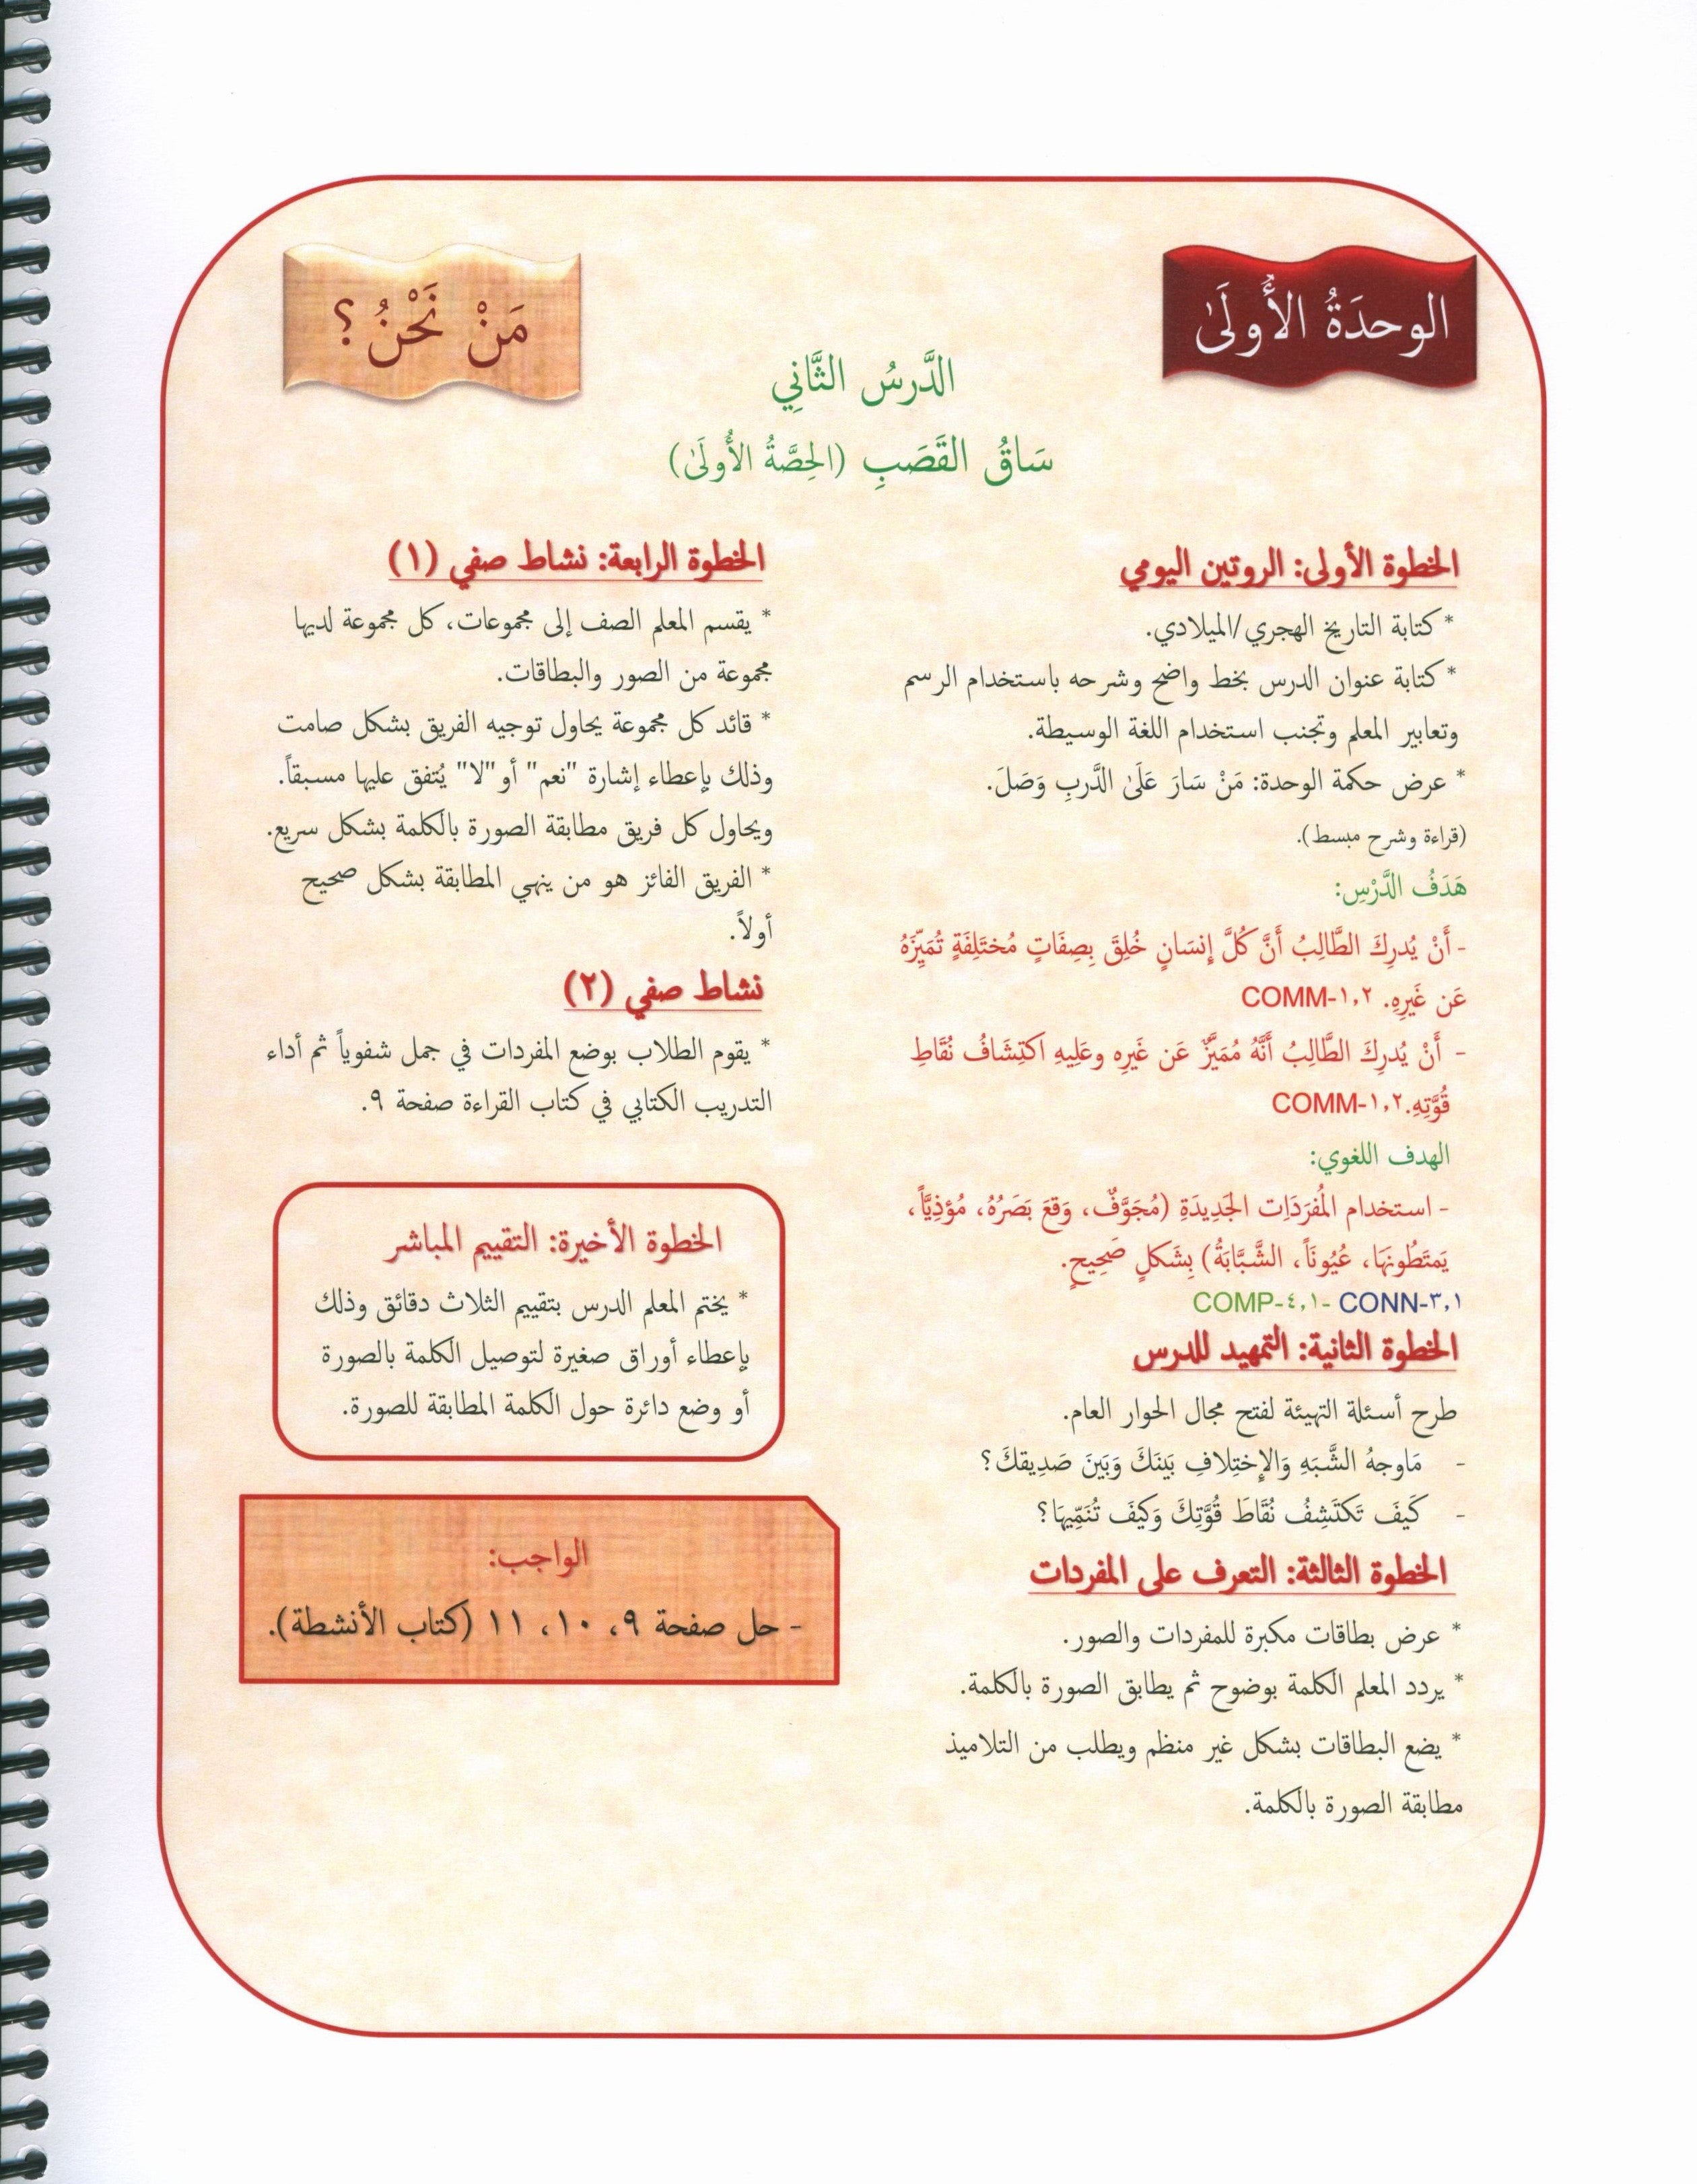 الوحدَةُ الأُولَىٰ
مَنْ نَحْنُ ؟
الدَّرسُ الثَّانِي
سَاقُ القَصَبِ (الحِصَّةُ الأُولَىٰ)
الخطوة الأولى: الروتين اليومي
* كتابة التاريخ الهجري/الميلادي.
* كتابة عنوان الدرس بخط واضح وشرحه باستخدام الرسم
وتعابير المعلم وتجنب استخدام اللغة الوسيطة.
* عرض حكمة الوحدة: مَنْ سَارَ عَلَىٰ الدَّربِ وَصَلَ.
(قراءة وشرح مبسط).
هَدَفُ الدَّرْسِ:
- أَنْ يُدرِكَ الطَّالِبُ أَنَّ كُلَّ إِنسَانٍ خُلِقَ بِصِفَاتٍ مُختَلِفَةٍ تُمَيِّزَهُ
عَن غَيرِهِ. COMM-١,٢
- أَنْ يُدرِكَ الطَّالِبُ أَنَّهُ مُمَيَّزٌ عَن غَيرِه وعَلِيهِ اكتِشَافُ نُقَاطِ
قُوَّتِهِ.COMM-١,٢
الهدف اللغوي:
- استخدام المُفرَدَاِت الجَدِيدَةِ (مُجَوَّفٌ، وَقعَ بَصَرُهُ، مُؤذِيَّاً،
يَمتَطُونهَا، عُيُونَاً، الشَّبَّابَةُ) بِشَكلٍ صَحِيحٍ.
COMP-٤,١- CONN-٣,١
الخطوة الثانية: التمهيد للدرس
طرح أسئلة التهيئة لفتح مجال الحوار العام.
- مَاوجهُ الشَّبَهِ وَالإختِلافِ بَينَكَ وَبَينَ صَدِيقكَ؟
- كَيفَ تَكتَشِفُ نُقَاطَ قُوَّتِكَ وَكَيفَ تُنَمِّيهَا؟
الخطوة الثالثة: التعرف على المفردات
* عرض بطاقات مكبرة للمفردات والصور.
* يردد المعلم الكلمة بوضوح ثم يطابق الصورة بالكلمة.
* يضع البطاقات بشكل غير منظم ويطلب من التلاميذ
مطابقة الصورة بالكلمة.
الخطوة الرابعة: نشاط صفي (١)
* يقسم المعلم الصف إلى مجموعات، كل مجموعة لديها
مجموعة من الصور والبطاقات.
* قائد كل مجموعة يحاول توجيه الفريق بشكل صامت
وذلك بإعطاء إشارة "نعم" أو"لا" يُتفق عليها مسبقاً.
ويحاول كل فريق مطابقة الصورة بالكلمة بشكل سريع.
* الفريق الفائز هو من ينهي المطابقة بشكل صحيح
أولاً.
نشاط صفي (٢)
* يقوم الطلاب بوضع المفردات في جمل شفوياً ثم أداء
التدريب الكتابي في كتاب القراءة صفحة ٩.
الخطوة الأخيرة: التقييم المباشر
* يختم المعلم الدرس بتقييم الثلاث دقائق وذلك
بإعطاء أوراق صغيرة لتوصيل الكلمة بالصورة
أو وضع دائرة حول الكلمة المطابقة للصورة.
الواجب:
- حل صفحة ٩، ١٠، ١١ (كتاب الأنشطة).